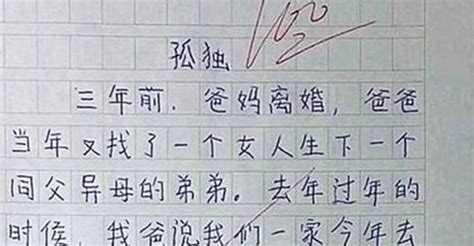 100
孤独
三年前.爸妈离婚,爸爸
当年又找了一个女人生下一个
同父异母的弟弟。去年过年的
时候,我爸说我们一家今年去